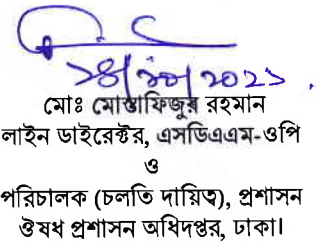 মোঃ মোস্তাফিজুর রহমান
লাইন ডাইরেক্টর, এসডিএএম-ওপি
ও
পরিচালক (চলতি দায়িত্ব), প্রশাসন
ঔষধ প্রশাসন অধিদপ্তর, ঢাকা।